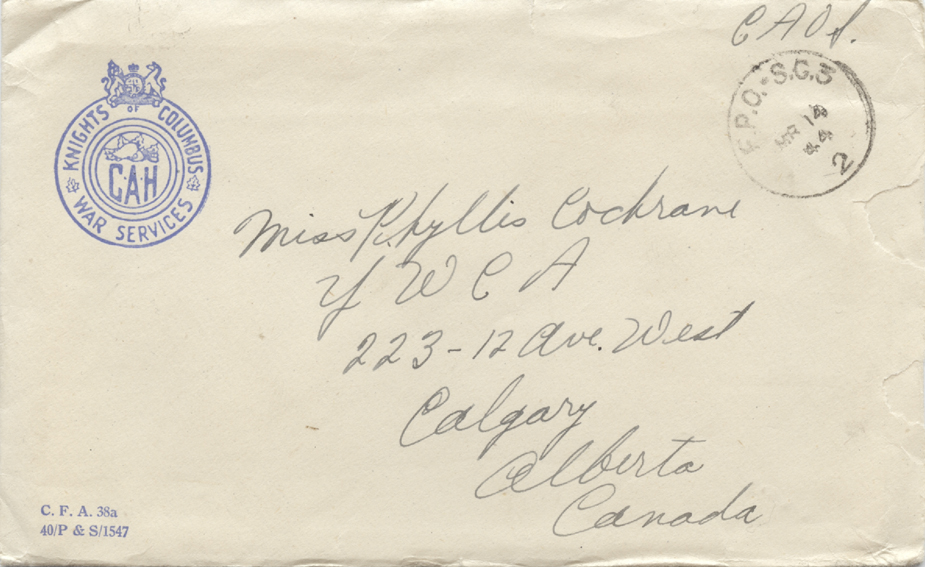 CAOS.
KNIGHTS OF COLUMBUS
C·A·H
WAR SERVICES
F.P.O.-S.C.3
MR 14
44
2
Miss Phyllis Cochrane
Y W C A
223-12 Ave. West
Calgary
Alberta
Canada
C. F. A. 38a
40/P & S/1547